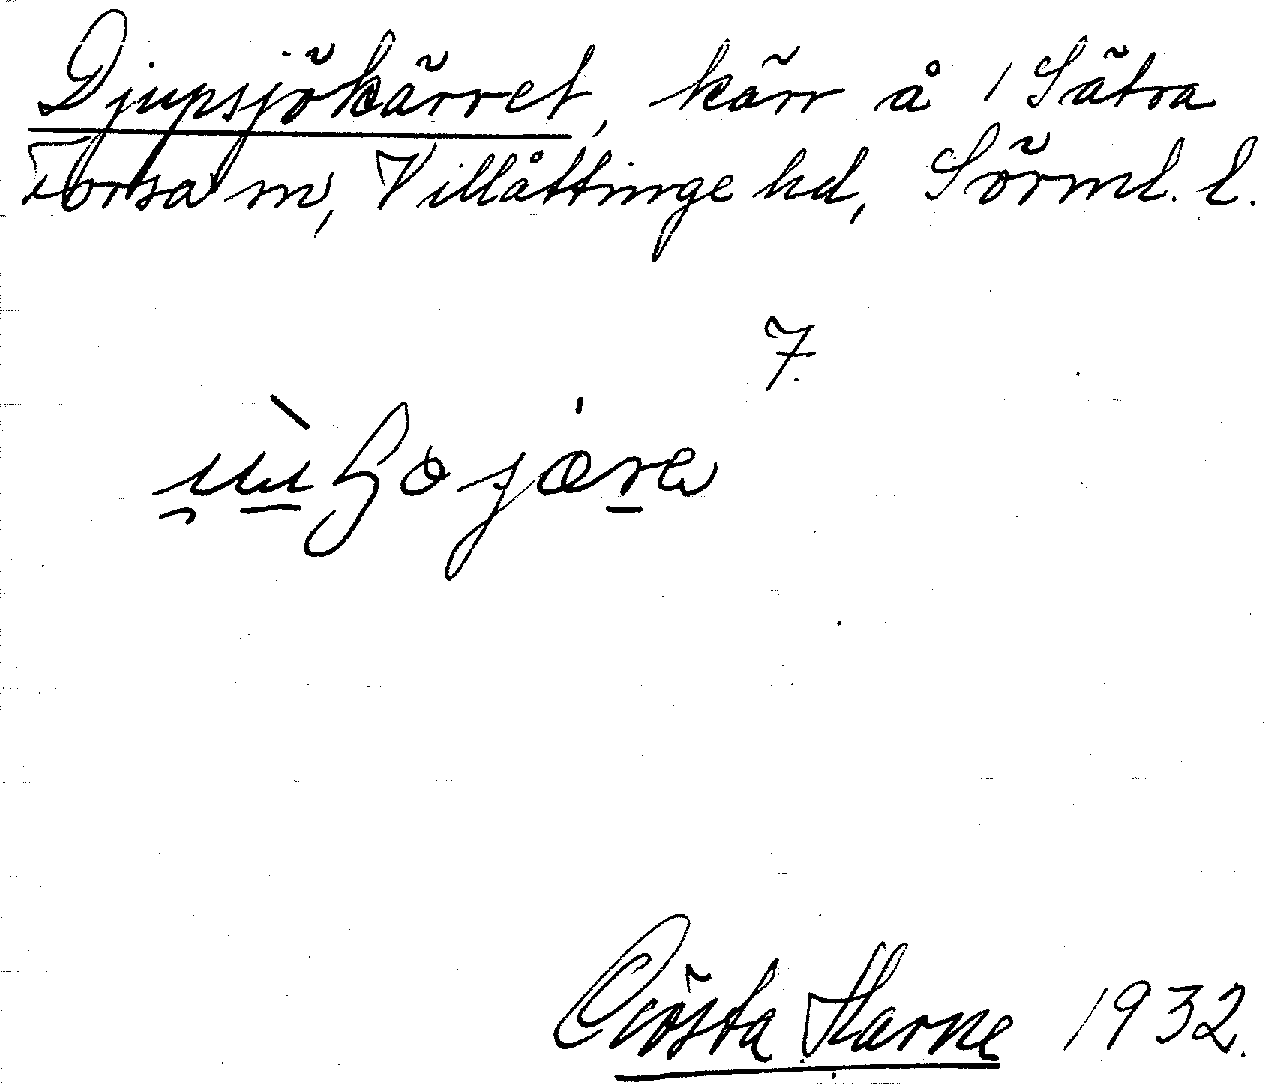 Djupsjökärret, kärr å 1 Sätra
Forsa sn, Villåttinge hd, Sörml. l.
7.
Gösta Harne 1932.